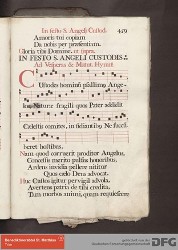 In festo S. Angeli Custod. 449
Amoris tui copiam
Da nobis per præsentiam.
Gloria tibi Domine, ut supra.
IN FESTO S. ANGELI CUSTODIS
Ad Vesperas & Matut. Hymn.
Custodes hominum psallimus Ange-
los, Naturæ fragili quos Pater addidit
Cælestis comites, insidiantibus Ne succum-
beret hostibus.
Nam quod corruerit proditor Angelus,
Concessis merito pulsus honoribus,
Ardens invidia pellere nititur
Quos cælo Deus advocat.
Huc Custos igitur pervigil advola,
Avertens patria de tibi credita,
Tam morbos animi, quam requiescere